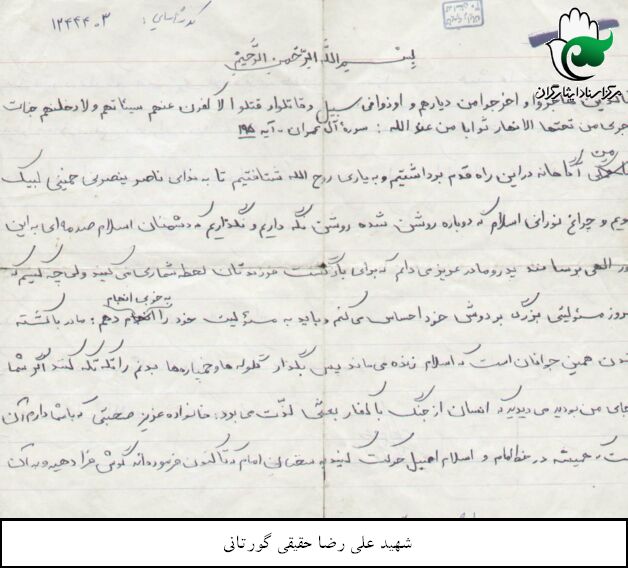 کد شناسایی: ۱۲۴۴۴۰۳
مرکز اسناد ایثارگران
بسم الله الرحمن الرحیم
هاجروا و اخرجوا من دیارهم و اوذوا فی سبیل و قاتلوا و قتلوا لا کفرن عنهم سیئاتهم ولا دخلنهم جنات
تجری من تحتها الانهار ثوابا من عند الله : سورهٔ آل عمران - آیه ۱۹۵
من آگاهانه در این راه قدم برداشتیم و به یاری روح الله شتافتیم تا به ندای ناصر ینصرنی خمینی لبیک
گویم و چراغ نورانی اسلام که دوباره روشن شده روشن نگه داریم و نگذاریم که دشمنان اسلام صدمه‌ای به این
نور الهی برسانند پدر و مادر عزیز می دانم که برای بازگشت فرزندتان لحظه شماری می کنید ولی چه کنیم که
امروز مسئولیتی بزرگ بر دوش خود احساس می کنم و باید به مسئولیت خود را به خوبی انجام دهم : مادر با کشته
شدن همین جوانان است که اسلام زنده می ماند پس بگذار گلوله ها و خمپاره ها بدنم را تکه تکه کنند اگر شما
جای من بودید می دیدید که انسان از جنگ با کفار بعثی لذت می برد : خانواده عزیز صحبتی که با شما دارم آن
است که همیشه در خط امام و اسلام اصیل حرکت کنید به سخنان امام که تاکنون فرموده‌اند گوش فرا دهید و به آن
شهید علی رضا حقیقی گورتانی